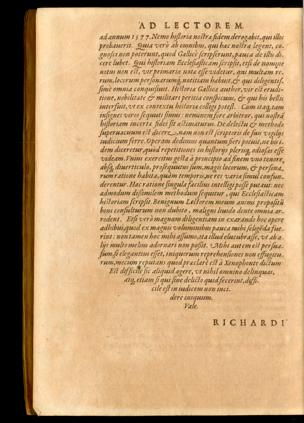 AD LECTOREM.
ad annum 1577. Nemo historiæ nostræ fidem derogabit, qui illos
probauerit. Quia verò ab omnibus, qui hæc nostra legent, co-
gnosci non poterunt, quod Gallicè scripserunt, pauca de illis di-
cere lubet. Qui historiam Ecclesiasticam scripsit, etsi de nomine
notus non est, vir primariæ notæ esse videtur, qui multam re-
rum, locorum personarumq, notitiam habuit, & qui diligentis-
simè omnia conquisiuit. Historiæ Gallicæ author, vir est erudi-
tione, nobilitate & militari peritia conspicuus, & qui his bellis
interfuit, vt ex contextu historiæ colligi potest. Cùm itaq, tam
insignes viros sequuti simus: neminem fore arbitror, qui nostræ
historiam incertæ fidei sit æstimaturus. De delectu & methodo
superuacuum est dicere, nam non est scriptoris de suis vigilijs
iudicium ferre. Operam dedimus quantum fieri potuit, ne bis i-
dem diceretur, quod repetitiones in historijs pleruq, odiosas esse
videam. Fuimus exercitus gesta à principio ad finem vno tenore,
absq, diuerticulo, prosequutus sum, magis locorum, & perso-
rum ratione habita, quàm temporis, ne res variæ simul confun-
derentur. Hac ratione singula facilius intelligi posse putaui: nec
admodum dissimilem methodum sequitur, qui Ecclesiasticam
historiam scripsit. Benignum Lectorem meum animi propositū
boni consulturum non dubito, malignū liuido dente omnia ar-
rodent. Etsi verò magnam diligentiam in exarando hoc opere
adhibui, quod ex magnis voluminibus pauca mihi seligēda fue-
rint: non tamen hoc mihi assumo, ita illud elucubrasse, vt ab a-
lijs multo melius adornari non possit. Mihi autem est persua-
sum, si elegantius esset, iniquorum reprehensiones non effugitu-
rum, mecum reputans quod præclarè est à Xenophonte dictum:
Est difficile sic aliquid agere, vt nihil omnino delinquas,
atq, etiam si quis sine delicto quid fecerint, diffi-
cile est in iudicem non inci-
dere iniquum.
Vale.
RICHARDI